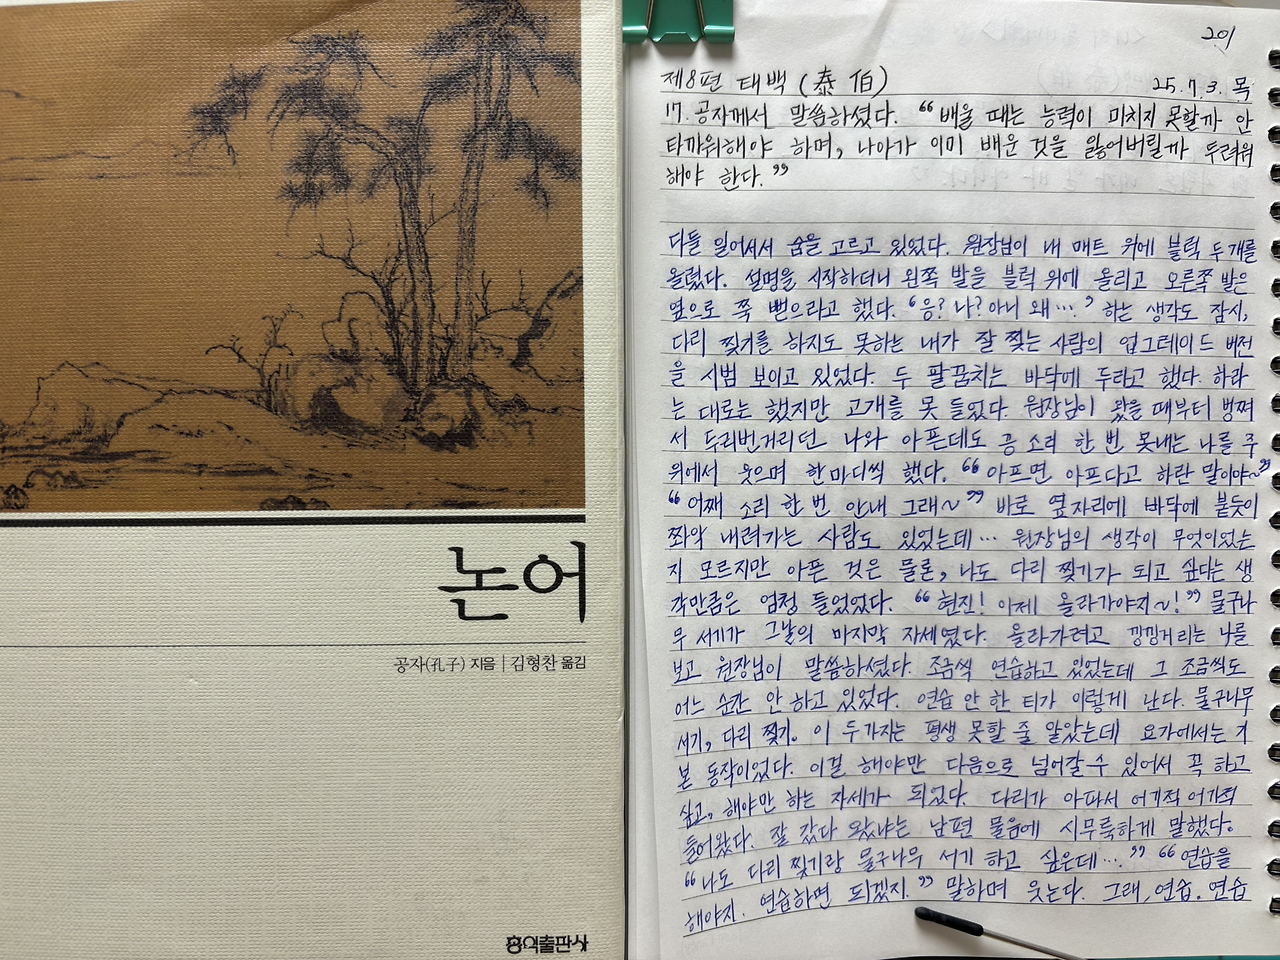 논어
공자(孔子) 지음 | 김형찬 옮김
홍익출판사
201
제8편 태백(泰伯) 25.7.3. 목
17. 공자께서 말씀하셨다. “배울 때는 능력이 미치지 못할까 안
타까워해야 하며, 나아가 이미 배운 것을 잃어버릴까 두려워
해야 한다.”
다들 일어서서 숨을 고르고 있었다. 원장님이 내 매트 위에 블럭 두개를
올렸다. 설명을 시작하더니 왼쪽 발을 블럭 위에 올리고 오른쪽 발은
옆으로 쭉 뻗으라고 했다. ‘응? 나? 아니 왜…’ 하는 생각도 잠시,
다리 찢기를 하지도 못하는 내가 잘 찢는 사람의 업그레이드 버전
을 시범 보이고 있었다. 두 팔꿈치는 바닥에 두라고 했다. 하라
는 대로는 했지만 고개를 못 들었다. 원장님이 왔을 때부터 벙쪄
서 두리번거리던 나와 아픈데도 끙 소리 한 번 못내는 나를 주
위에서 웃으며 한마디씩 했다. “아프면 아프다고 하란 말이야~”
“어째 소리 한 번 안내 그래~” 바로 옆자리에 바닥에 붙듯이
쫘악 내려가는 사람도 있었는데… 원장님의 생각이 무엇이었는
지 모르지만 아픈 것은 물론, 나도 다리 찢기가 되고 싶다는 생
각만큼은 엄청 들었었다. “현진! 이제 올라가야지~!” 물구나
무 서기가 그날의 마지막 자세였다. 올라가려고 깡깡거리는 나를
보고 원장님이 말씀하셨다. 조금씩 연습하고 있었는데 그 조금씩도
어느 순간 안 하고 있었다. 연습 안 한 티가 이렇게 난다. 물구나무
서기, 다리 찢기. 이 두가지는 평생 못할 줄 알았는데 요가에서는 기
본 동작이었다. 이걸 해야만 다음으로 넘어갈 수 있어서 꼭 하고
싶고, 해야만 하는 자세가 되었다. 다리가 아파서 어기적 어기적
들어왔다. 잘 갔다 왔냐는 남편 물음에 시무룩하게 말했다.
“나도 다리 찢기랑 물구나무 서기 하고 싶은데…” “연습을
해야지. 연습하면 되겠지.” 말하며 웃는다. 그래, 연습. 연습